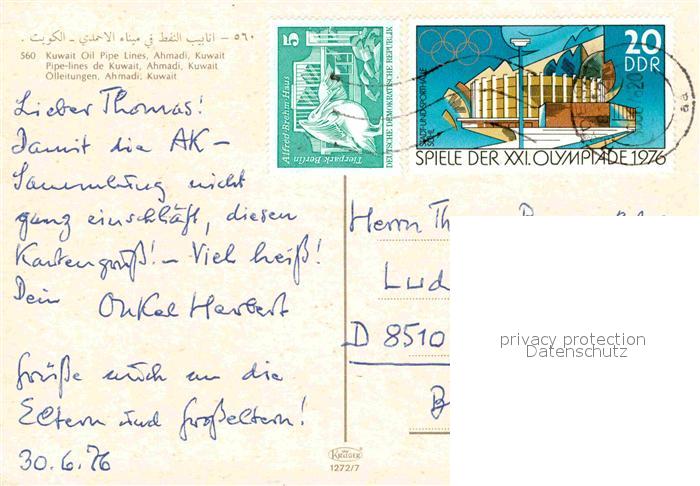 ٥٦٠ – انابيب النفط في ميناء الاحمدي – الكويت .
560 Kuwait Oil Pipe Lines, Ahmadi, Kuwait
Pipe-lines de Kuwait, Ahmadi, Kuwait
Ölleitungen, Ahmadi, Kuwait
Lieber Thomas!
Damit die AK-
Sammlung nicht
ganz einschläft, diesen
Kartengruß! – Viel heiß!
Dein Onkel Herbert
Grüße auch an die
Eltern und Großeltern!
30.6.76
5
Alfred-Brehm-Haus
Tierpark Berlin
DEUTSCHE DEMOKRATISCHE REPUBLIK
20
DDR
STADT- UND SPORTHALLE
SUHL
SPIELE DER XXI. OLYMPIADE 1976
Herrn Th
Lud
D 8510
B
privacy protection
Datenschutz
KRÜGER
1272/7